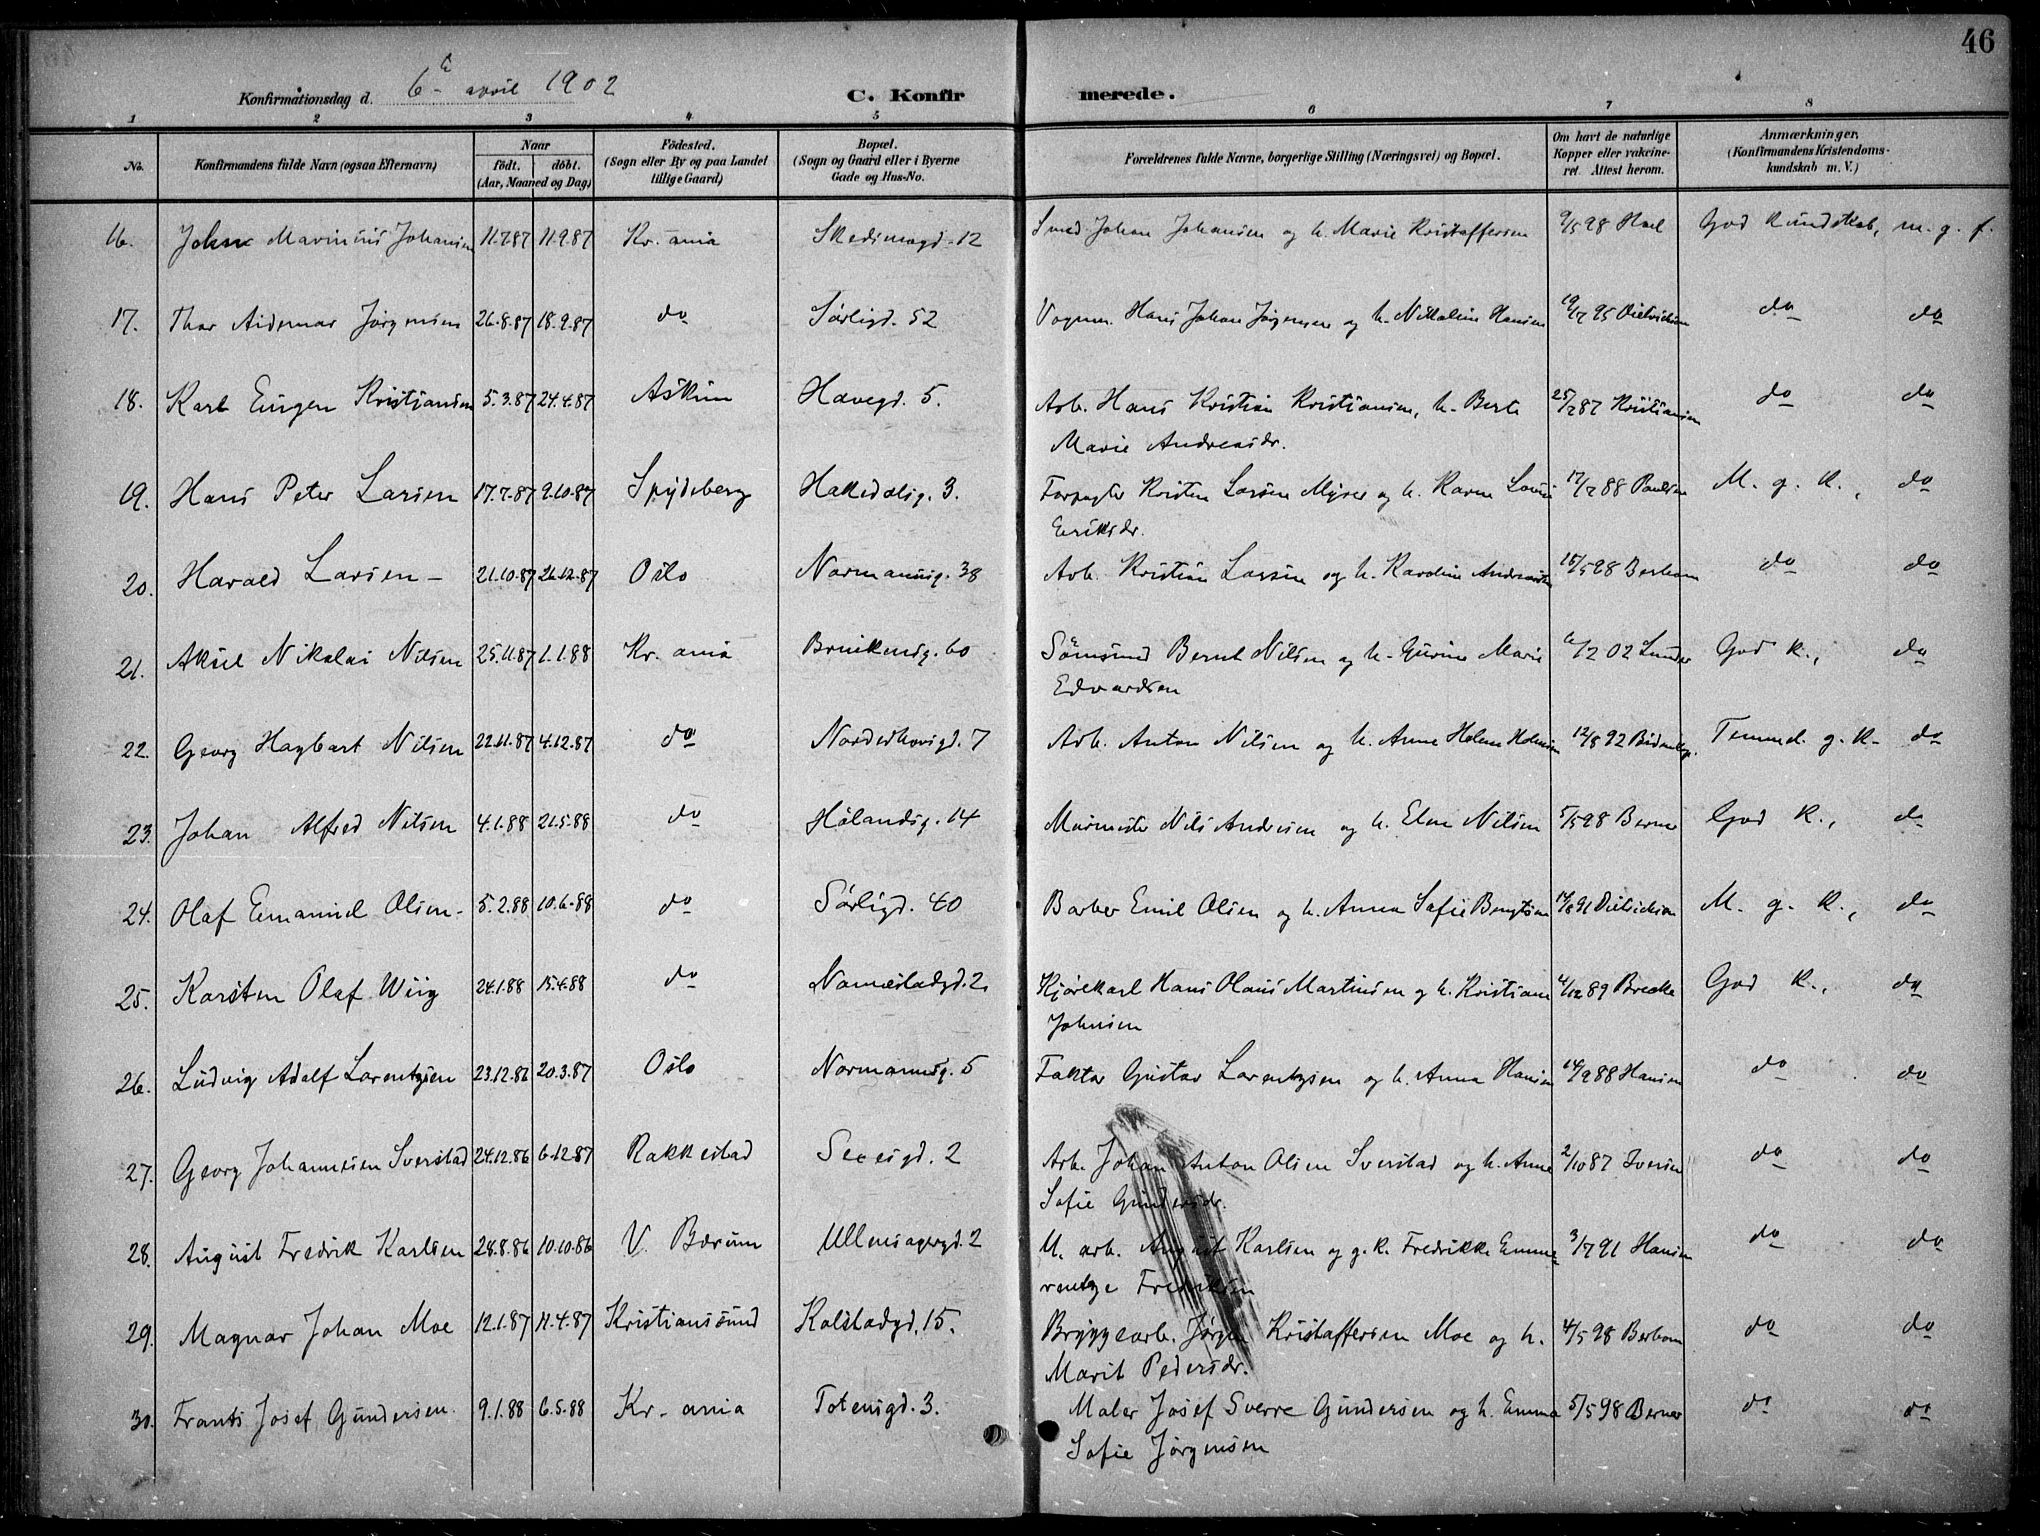 46
Konfirmationsdag d. 6te april 1902 C. Konfirmerede.
1 2 3 4 5 6 7 8
No. Konfirmandens fulde Navn (ogsaa Efternavn) Naar födt. döbt. (Aar, Maaned og Dag) Födested. (Sogn eller By og paa Landet tillige Gaard) Bopæl. (Sogn og Gaard eller i Byerne Gade og Hus-No. Forældrenes fulde Navne, borgerlige Stilling (Næringsvei) og Bopæl. Om havt de naturlige Kopper eller vakcineret. Attest herom. Anmærkninger. (Konfirmandens Kristendomskundskab m. V.)
16. Johan Marinius Johansen 11.7.87 11.9.87 Kr.ania Skedsmogd. 12 Smed Johan Johansen og h. Marie Kristoffersen 9/5 98 God Kundskab, m. g. f.
17. Thor Aidemar Jørgensen 26.8.87 18.9.87 do Sørligd. 52 Vognm. Hans Johan Jørgensen og h. Nikoline Hansen 19/7 95 Dietrichson do do
18. Karl Eugen Kristiansen 5.3.87 24.4.87 Askim Havegd. 5. Arb. Hans Kristian Kristiansen, h. Berte
Marie Andreasdr. 25/7 87 Kristiansen do do
19. Hans Peter Larsen 17.7.87 9.10.87 Spydeberg Hakedalsg. 3. Forpagter Kristen Larsen Myrer og h. Karen Lovise
Eriksdr. 17/7 88 Paulsen M. g. K., do
20. Harald Larsen - 21.10.87 26.12.87 Oslo Normannsg. 38 Arb. Kristian Larsen og h. Karoline Andreassen 15/5 98 Berbom do do
21. Aksel Nikolai Nilsen 25.11.87 1.1.88 Kr. ania Bruikensg. 60 Sömand Bernt Nilsen og h. Gurine Marie
Edvardsen 6/2 02 Lunder God K., do
22. Georg Hagbart Nilsen 22.11.87 4.12.87 do Norderhovsgd. 7 Arb. Anton Nilsen og h. Anne Helene Holmsen 12/8 92 Temmel. g. K. do
23. Johan Alfred Nilsen 4.1.88 21.5.88 do Hølandsg. 14 Murmester Nils Andresen og h. Elen Nilsen 5/5 98 Berner God K., do
24. Olaf Emanuel Olsen - 5.2.88 10.6.88 do Sørligd. 40 Barber Emil Olsen og h. Anna Sofie Bengtsen 14/8 91 Dietrichson M. g. K., do
25. Karsten Olaf Wiig 24.1.88 15.4.88 do Nannestadgd. 2. Kjørekarl Hans Olaus Martinsen og h. Kristiane
Johnsen 4/12 89 Brecke God K., do
26. Ludvig Adolf Lorentzsen 23.12.86 20.3.87 Oslo Normannsg. 5 Faktor Gustav Lorentzsen og h. Anna Hansen 14/9 88 Hansen do do
27. Georg Johannesen Sverstad 24.12.86 6.12.87 Rakkestad Sexesgd. 2 Arb. Johan Anton Olsen Sverstad og h. Anne
Sofie Gundersdr. 2/10 87 Iversen do do
28. August Fredrik Karlsen 28.8.86 10.10.86 V. Bærum Ullensagergd. 2 U. arb. August Karlsen og g. k. Fredrikke Emme
rentze Fredriksen 3/7 91 Hansen do do
29. Magnar Johan Moe 12.1.87 11.4.87 Kristianssund Kolstadgd. 15. Bryggearb. Jørgen Kristoffersen Moe og h.
Marit Pedersdr. 4/5 98 Berbom do do
30. Frants Josef Gundersen. 9.1.88 6.5.88 Kr. ania Totensgd. 3. Maler Josef Sverre Gundersen og h. Emma
Sofie Jørgensen 5/5 98 Berner do do